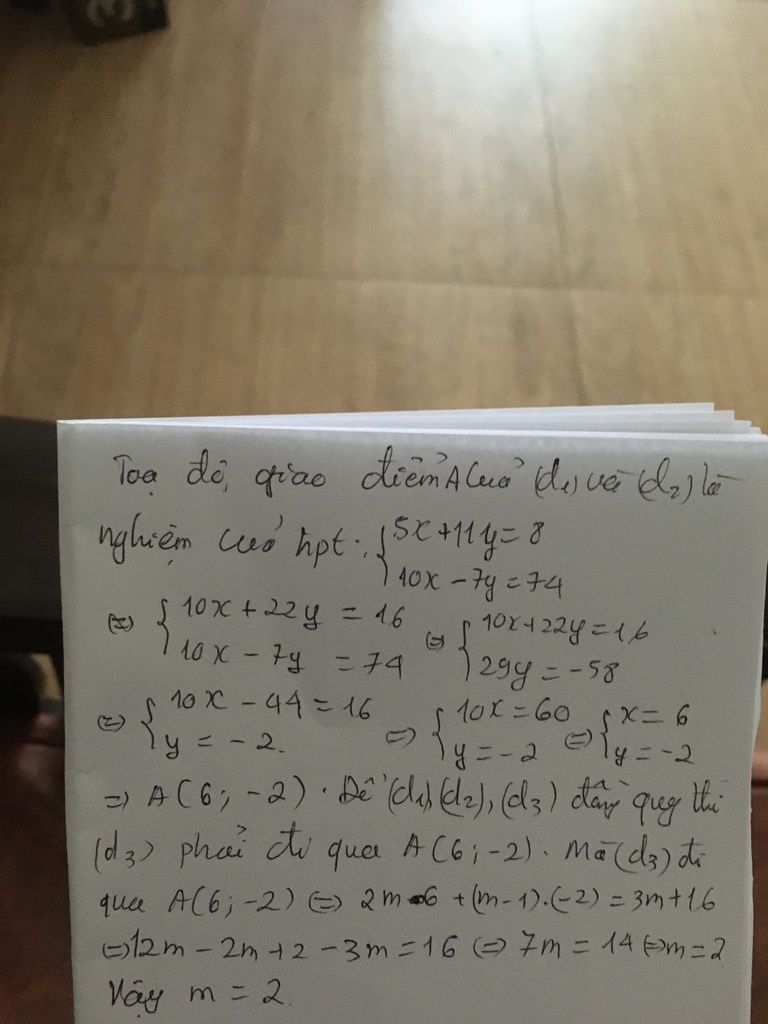 Toạ độ giao điểm A của (d₁) và (d₂) là
nghiệm của hpt: { 5x+11y=8
10x-7y=74
(=) { 10x+22y = 16
10x - 7y = 74 (=) { 10x+22y=16
29y = -58
(=) { 10x - 44 = 16
y = -2. (=) { 10x = 60
y = -2 (=) { x = 6
y = -2
=) A(6; -2). Để (d₁)(d₂), (d₃) đồng quy thì
(d₃) phải đi qua A(6; -2). Mà (d₃) đi
qua A(6; -2) (=) 2m.6 + (m-1).(-2) = 3m+16
(=) 12m - 2m + 2 - 3m = 16 (=) 7m = 14 (=) m = 2
Vậy m = 2.